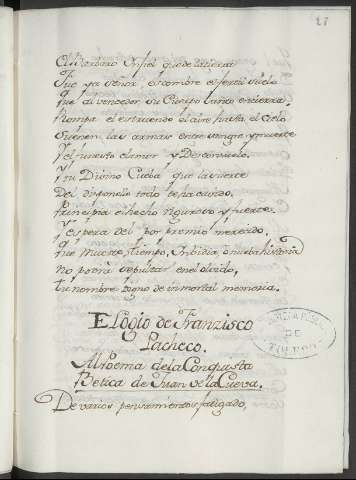 27
El
Que ya señor, escombre el fertil suelo
que al vencedor su Cuerpo
Rompa el estruendo el aire hasta el Cielo
Suenen las armas entre sangre y muerte
Y el funesto clamor y Desconsuelo.
Y tu Divino Cueba que la suerte
Del disponello todo te ha cavido,
Principia el hecho riguroso y fuerte.
Y espera del por premio merecido,
que Muerte, tiempo, Inbidia, o nueba historia
No podrá sepultar en el olvido,
tu nombre digno de inmortal memoria.
Elogio de Franzisco
Pacheco.
Al Poema de la Conquista
Betica de Juan de la Cueva.
De varios pensamientos fatigado,
DE